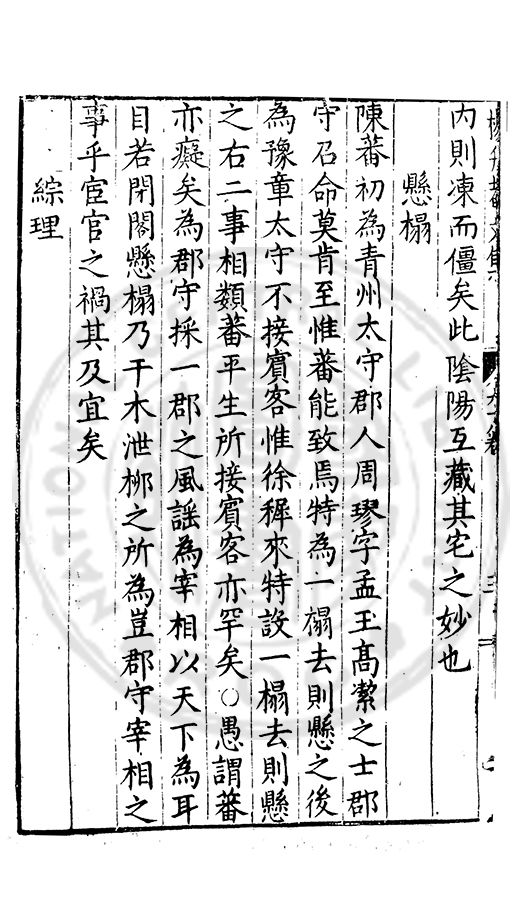 內則凍而僵矣此陰陽互藏其宅之妙也
懸榻
陳蕃初為青州太守郡人周璆字孟玉高潔之士郡
守召命莫肯至惟蕃能致焉特為一榻去則懸之後
為豫章太守不接賓客惟徐穉來特設一榻去則懸
之右二事相類蕃平生所接賓客亦罕矣○愚謂蕃
亦癡矣為郡守採一郡之風謠為宰相以天下為耳
目若閉閣懸榻乃干木泄柳之所為豈郡守宰相之
事乎宦官之禍其及宜矣
綜理